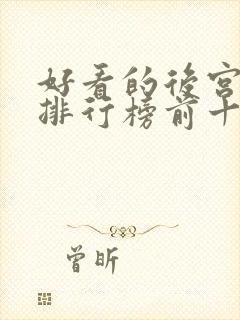 好看的後宮
排行榜前十
曾昕